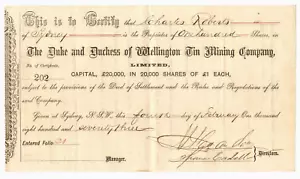 This is to Certify that Charles Roberts
of Sydney is the Proprietor of One hundred Shares, in
The Duke and Duchess of Wellington Tin Mining Company,
LIMITED,
No. of Certificate.
CAPITAL, £20,000, IN 20,000 SHARES OF £1 EACH,
202
subject to the provisions of the Deed of Settlement and the Rules and Regulations of the
said Company.
Given at Sydney, N.S.W. this fourth day of February One thousand
eight hundred and seventy three
Entered Folio 21
Manager.
Directors.